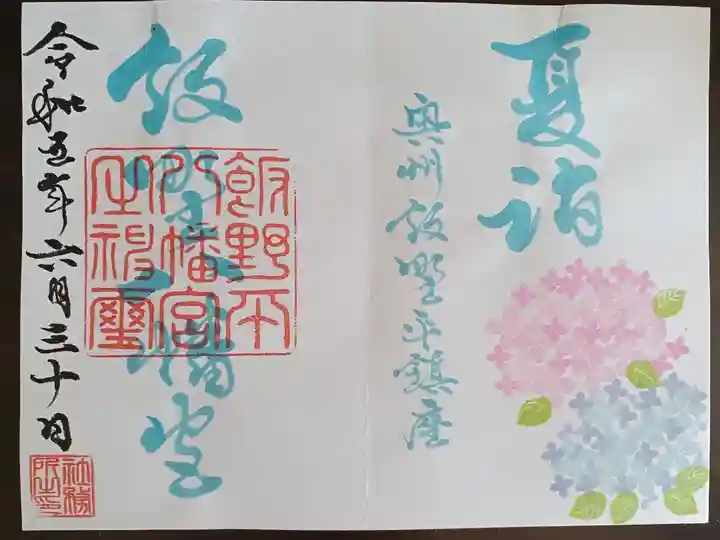 夏詣
奥州飯野平鎮座
飯野八幡宮
飯野平
八幡宮
令和五年六月三十日
社務
所之印